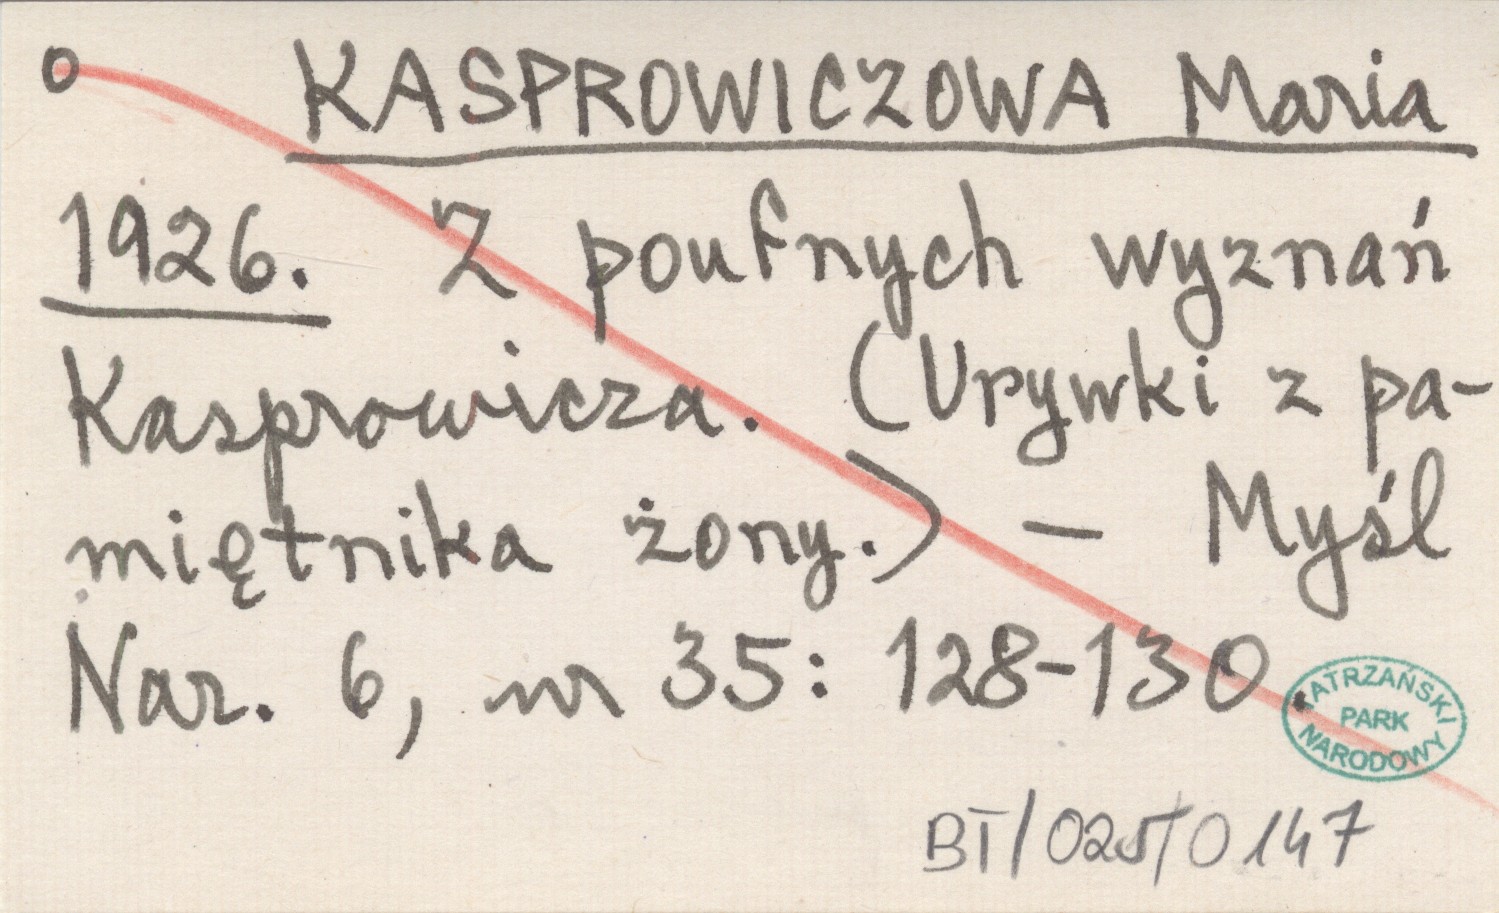 O KASPROWICZOWA Maria
1926. Z poufnych wyznań
Kasprowicza. (Urywki z pa-
miętnika żony.) – Myśl
Nar. 6, nr 35: 128-130.
TATRZAŃSKI
PARK
NARODOWY
BT/025/0147